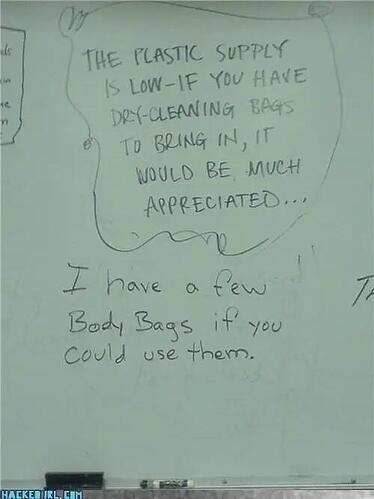 THE PLASTIC SUPPLY
IS LOW-IF YOU HAVE
DRY-CLEANING BAGS
TO BRING IN, IT
WOULD BE MUCH
APPRECIATED...
I have a few
Body Bags if you
could use them.
HACKED IRL.COM